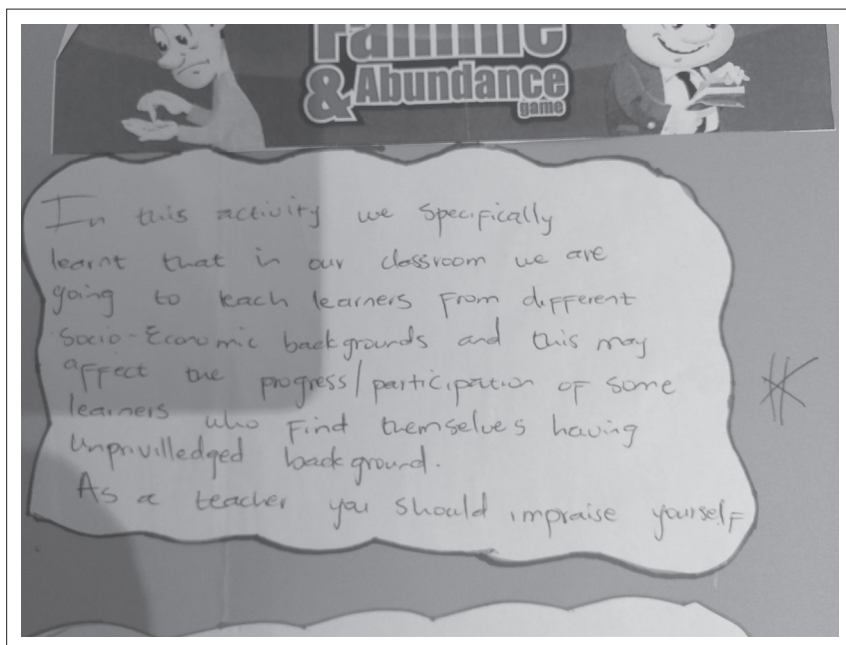 Famine
& Abundance
game
In this activity we specifically
learnt that in our classroom we are
going to teach learners from different
socio-Economic backgrounds and this may
affect the progress/participation of some
learners who find themselves having
unprivilledged background.
As a teacher you should impraise yourself